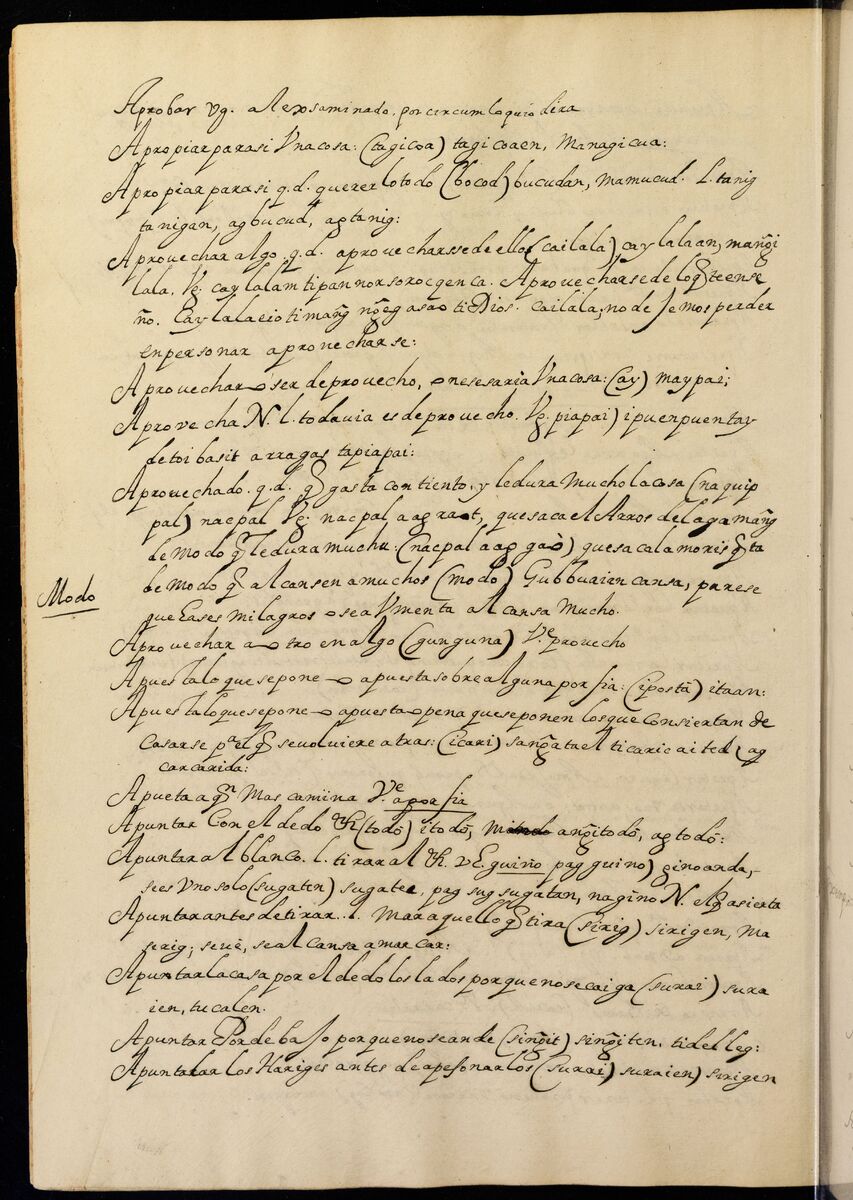 Aprobar vg. al exsaminado, por circumloquio dira
Apropiar para si Vna cosa: (tagicoa) tagicoaen, Managicua:
Apropiar para si q.d. querer lo todo (bocod) bucudan, mamucud. l. tanig
tanigan, agbucud, agtanig:
Aprovechar algo. q.d. aprovecharsse de ello (cailala) caylalaan, mang̃i
lala. Vg. caylalam tipannorsorocgenca. Aprovecharse de lo q̃ te ense
ño. Caylalaeio ti mang̃ ng̃egasão ti Dios. Cailala, no deJemos perder
en personar aprovecharse:
Aprovechar o ser de provecho, o nesesaria Vna cosa: (ay) maypai;
Aprovecha N. l. todavia es de provecho. Vg. piapai) ipuenpuentay
detoi basit a rragas tapiapai:
Aprovechado. q.d. q̃ gasta con tiento, y le dura Mucho la cosa (naquip
pal) nacpal Vg. nacpal a agraot, que saca el Arros de laga mang̃
de Modo q̃ le dura muchu. (nacpal a ag gaò) que saca la morisq̃ta
Modo
de Modo q̃ alcansen a muchos (modo) Gubbuaien cansa, parese
que Eases milagros o sea Vmenta alcansa Mucho.
Aprovechar a otro en algo (gunguna) Ve. provecho
Apuesta lo que se pone o apuesta sobre alguna porfia: (iposta) itaan:
Apuesta lo que se pone o apuesta o pena que se ponen los que Consiertan de
Casarse pa. el q̃ se volviere atras: (icari) sang̃ata el ticaric aited, ag
carcarida:
Apueta a qn. Mas camina Ve. aporfia
Apuntar Con el dedo &. (todo) itodo, ang̃itodo, agtodo:
Apuntar al blanco. l. tirar al &. vE. guino pagguino) ginoanda,
sees Vno solo (sugaten) sugatec, pag sugsugatan, nagino N. el q̃ asierta
Apuntar antes de tirar... l. Mar aquello q̃ tira (sirig) sirigen, Ma
serig; sevè, se alcansa amarcar:
Apuntar la casa por el dedo los lados porque no se caiga (surai) sura
ien, tucalen.
Apuntar Por debaJo porque no se ande (sing̃it) sing̃iten, tidelleg:
Apuntalar los Hariges antes de apesonarlos (surai) suraien) sirigen